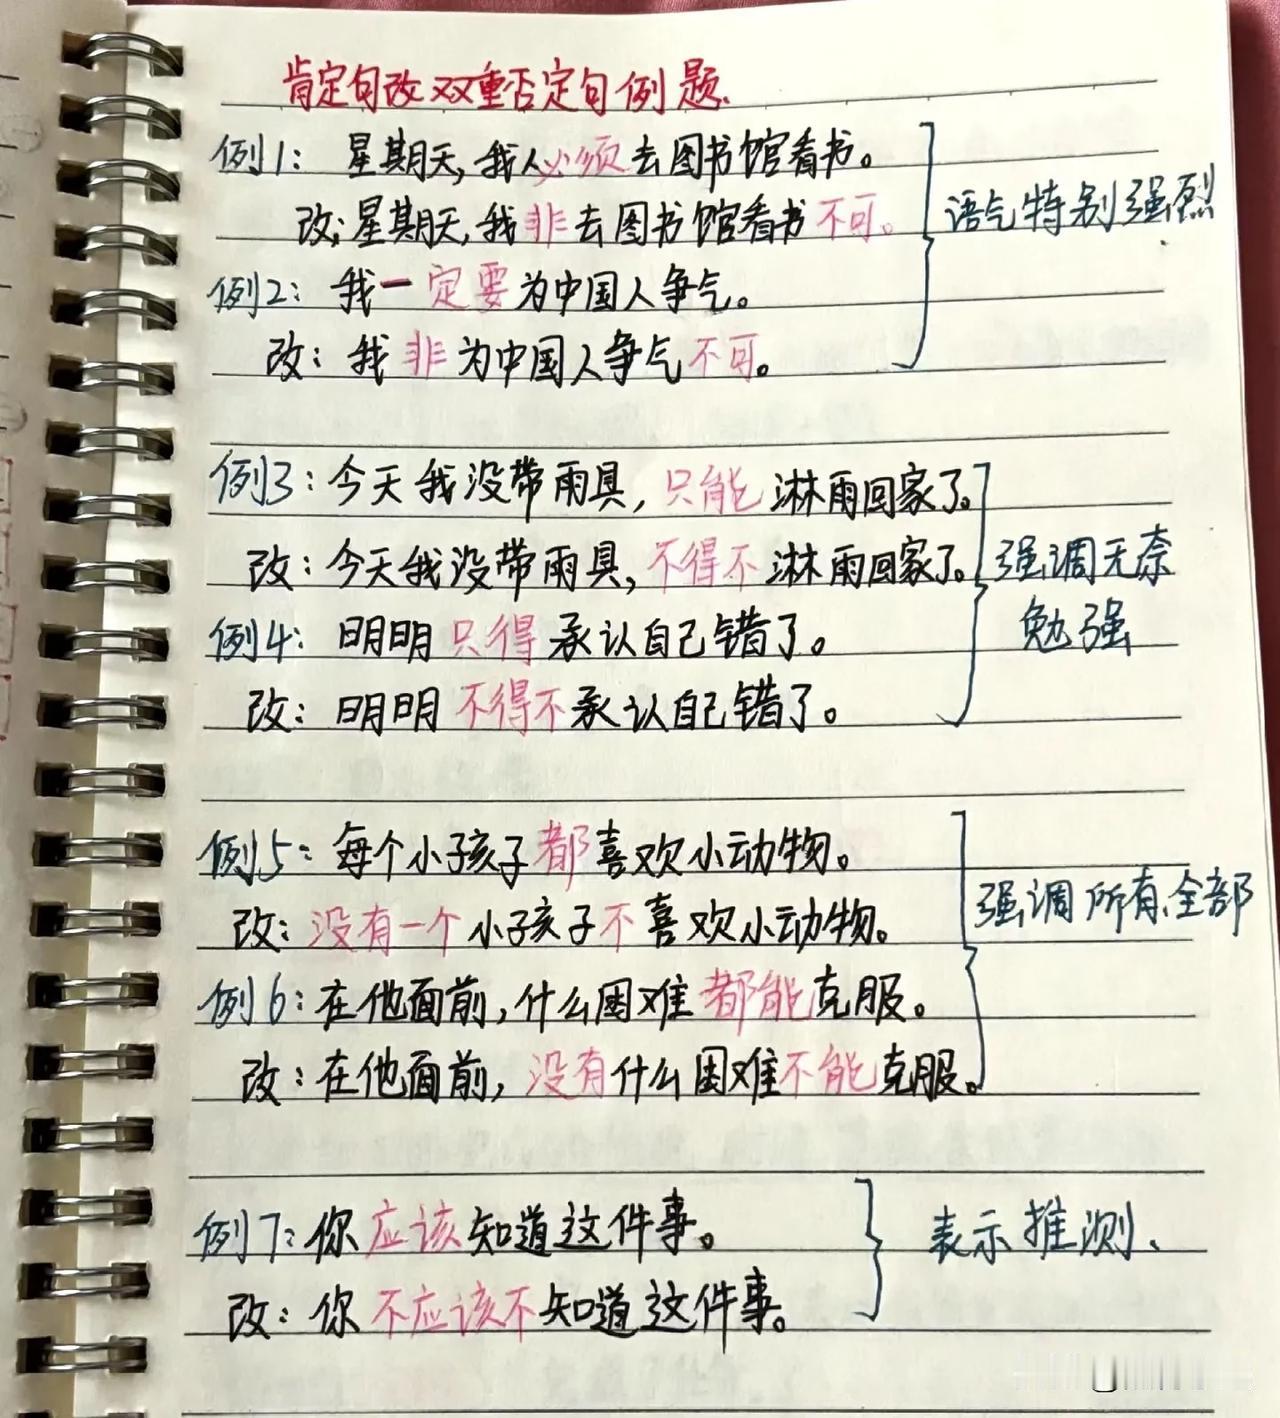 肯定句改双重否定句例题.
例1：星期天,我必须去图书馆看书。
改:星期天,我非去图书馆看书不可。
语气特别强烈
例2：我一定要为中国人争气。
改：我非为中国人争气不可。
例3：今天我没带雨具,只能淋雨回家了。
改：今天我没带雨具,不得不淋雨回家了。
强调无奈
勉强
例4：明明只得承认自己错了。
改：明明不得不承认自己错了。
例5：每个小孩子都喜欢小动物。
改：没有一个小孩子不喜欢小动物。
强调所有、全部
例6：在他面前,什么困难都能克服。
改：在他面前,没有什么困难不能克服。
例7：你应该知道这件事。
改：你不应该不知道这件事。
表示推测、